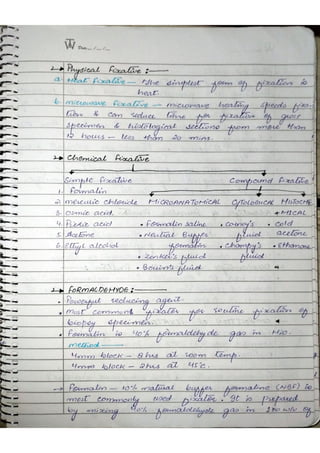 2 → Physical Fixative :—
a. Heat Fixative — The simplest form of fixation is
heat.
b. microwave fixative — microwave heating speeds fixa-
tion & can reduce time for fixation of gross
specimen & histological sections from more than
12 hours — less than 20 mins.
2. → Chemical Fixative
Simple Fixative Compound Fixative
1. Formalin
2. mercuric chloride MICROANATOMICAL CYTOLOGICAL HISTOCHE
3. osmic acid. MICAL
4. Picric acid • Formalin saline • carnoy's • cold
5. Acetone • Neutral Buffer fluid acetone
6. Ethyl alcohol formalin • champy's • Ethanol
• Zenker's fluid fluid
• Bouin's fluid
2. → FORMALDEHYDE :—
• Powerful reducing agent.
• most common fixator for routine fixation of
biopsy specimen.
• Formalin is 40% formaldehyde gas in H2O.
method —
4mm block — 8 hrs at room temp.
4mm block — 2 hrs at 45°C.
→ Formalin — 10% natural buffer formaline (NBF) is
most commonly used fixator. It is prepared
by mixing 40% formaldehyde gas in of